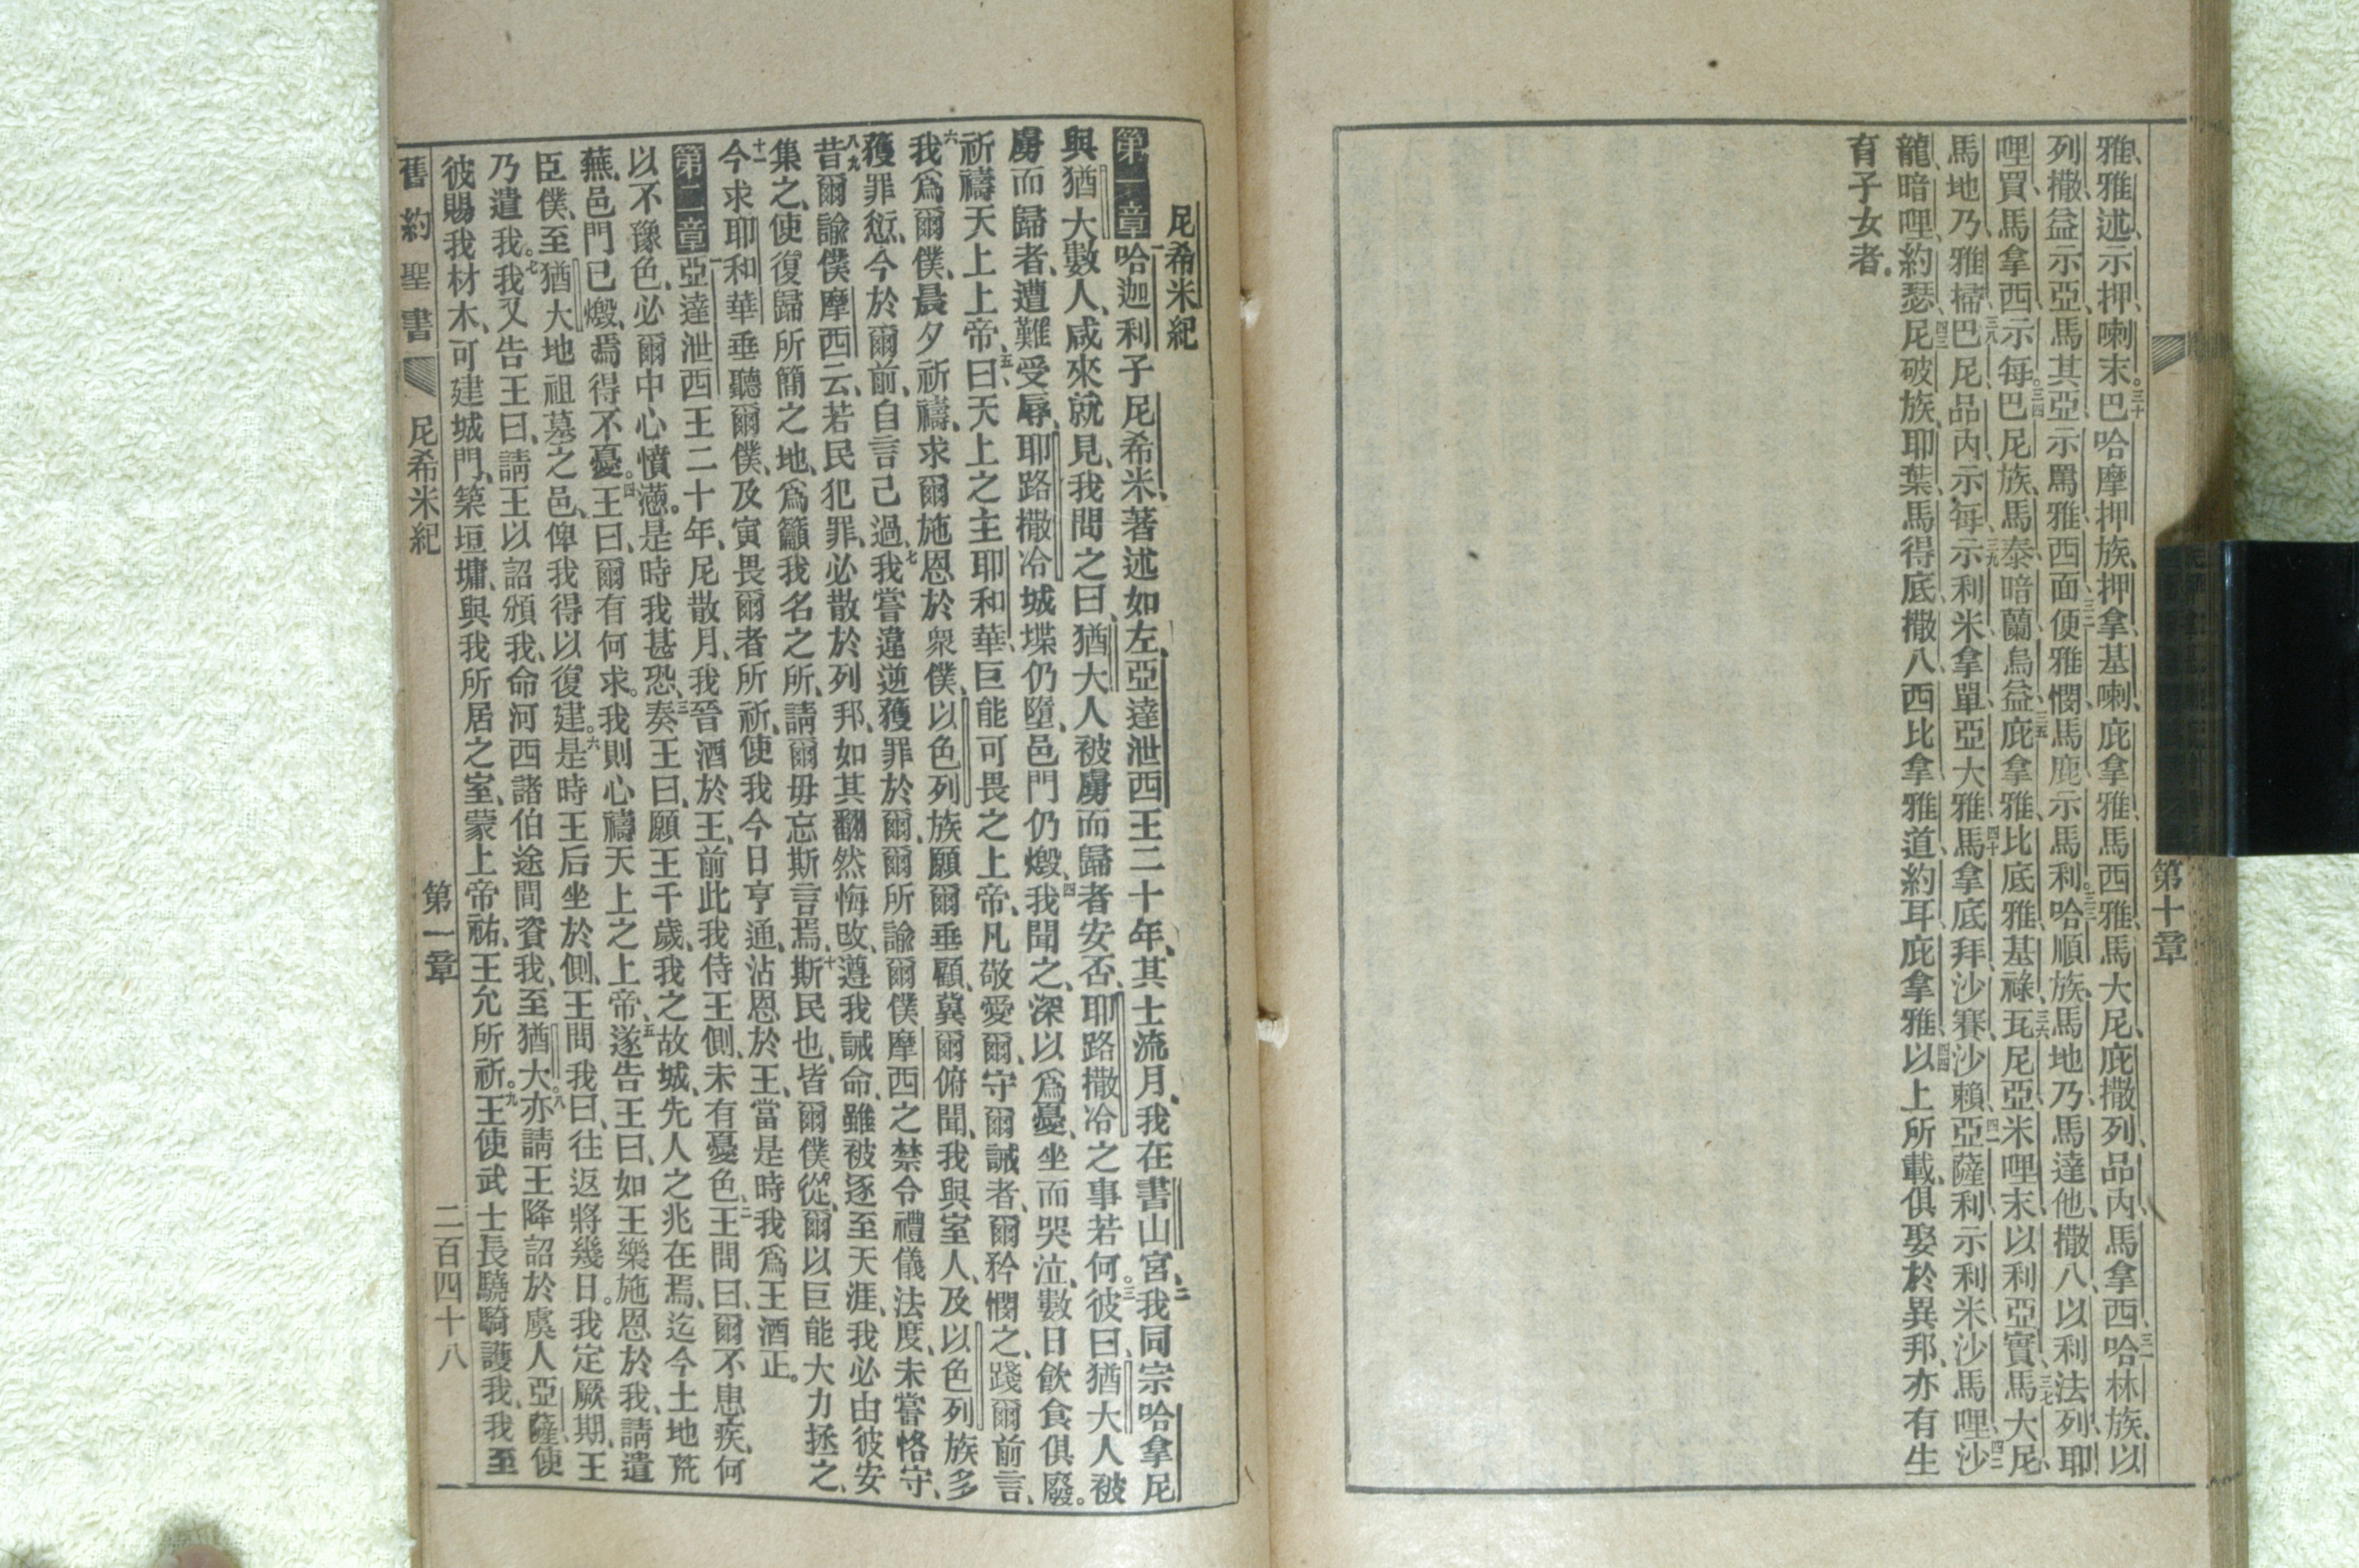 第十章
雅、雅述、示押、喇末。三十巴哈摩押族、押拿、基喇、庇拿雅、馬西雅、馬大尼、庇撒列、品內、馬拿西、三一哈林族、以
列撒、益示亞、馬其亞、示罵雅、西面、三二便雅憫、馬鹿、示馬利。三三哈順族、馬地乃、馬達他、撒八、以利法列、耶
哩買、馬拿西、示每。三四巴尼族、馬泰、暗蘭、烏益、三五庇拿雅、比底雅、基祿、三六瓦尼亞、米哩末、以利亞實、三七馬大尼、
馬地乃、雅掃、三八巴尼、品內、示每、三九示利米、拿單、亞大雅、四十馬拿底拜、沙賽、沙賴、四一亞薩利、示利米、沙馬哩、四二沙
龍、暗哩、約瑟、四三尼破族、耶葉、馬得底、撒八、西比拿、雅道、約耳、庇拿雅、四四以上所載、俱娶於異邦、亦有生
育子女者。
尼希米紀
第一章一哈迦利子尼希米、著述如左、亞達泄西王二十年、其士流月、我在書山宮、二我同宗哈拿尼
與猶大數人、咸來就見、我問之曰、猶大人被虜而歸者安否、耶路撒冷之事若何。三彼曰、猶大人被
虜而歸者、遭難受辱、耶路撒冷城堞仍墮、邑門仍燬、四我聞之、深以爲憂、坐而哭泣、數日飲食俱廢。
祈禱天上上帝、五曰、天上之主耶和華、巨能可畏之上帝、凡敬愛爾、守爾誡者、爾矜憫之、踐爾前言、
六我爲爾僕、晨夕祈禱、求爾施恩於衆僕、以色列族、願爾垂顧、冀爾俯聞、我與室人、及以色列族多
獲罪愆、今於爾前、自言己過、七我嘗違逆獲罪於爾、爾所諭爾僕摩西之禁令禮儀法度、未嘗恪守、
八九昔爾諭僕摩西云、若民犯罪、必散於列邦、如其翻然悔改、遵我誡命、雖被逐至天涯、我必由彼安
集之、使復歸所簡之地、爲籲我名之所、請爾毋忘斯言焉、十斯民也、皆爾僕從、爾以巨能大力拯之、
十一今求耶和華垂聽爾僕、及寅畏爾者所祈、使我今日亨通、沾恩於王、當是時我爲王酒正。
第二章一亞達泄西王二十年、尼散月、我晉酒於王、前此我侍王側、未有憂色、二王問曰、爾不患疾、何
以不豫色、必爾中心憤懣。是時我甚恐、三奏王曰、願王千歲、我之故城、先人之兆在焉、迄今土地荒
蕪、邑門已燬、焉得不憂。四王曰、爾有何求。我則心禱天上之上帝、五遂告王曰、如王樂施恩於我、請遣
臣僕、至猶大地祖墓之邑、俾我得以復建。六是時王后坐於側、王問我曰、往返將幾日。我定厥期、王
乃遣我。七我又告王曰、請王以詔頒我、命河西諸伯途間資我、至猶大。八亦請王降詔於虞人亞薩、使
彼賜我材木、可建城門、築垣墉、與我所居之室、蒙上帝祐、王允所祈。九王使武士長驍騎護我、我至
舊約聖書 尼希米紀 第一章 二百四十八